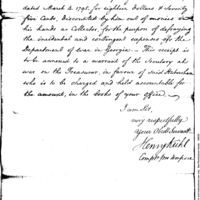 dated March 2. 1795. for eighteen dollars & seventy
five Cents, discounted by him out of monies in
his hands as Collector, for the purpose of defraying
the incidental and contingent expenses of the
Department of War in Georgia. – This receipt is
to be annexed to a warrant of the Secretary of
war on the Treasurer, in favour of said Habersham
who is to be charged and held accountable for
the amount, in the books of your office.
I am Sir,
very respectfully
Your Obed. Servant
Henry Kuhl
Comptr. pro tempore